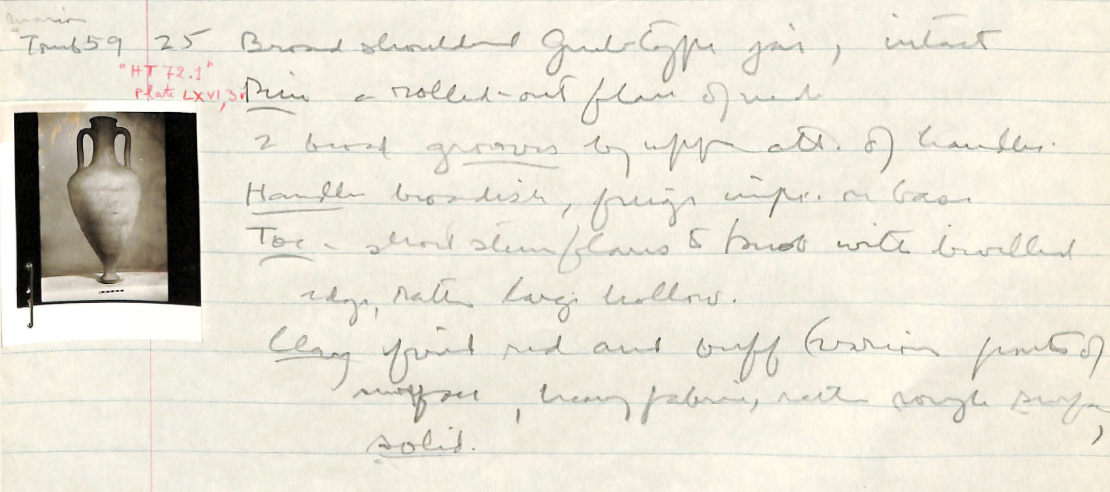 Marion
Tomb 59 25 Broad shouldered Greek-type jar, intact
"HT 72.1"
Plate LXVI, 3
Rim a rolled-out flare of neck
2 broad grooves by upper att. of handles.
Handles broadish, finger impr. on base
Toe - short stem flares to knob with bevelled
edge, rather large hollow.
Clay fired red and buff (various parts of
surface, heavy fabric, rather rough surface,
solid.